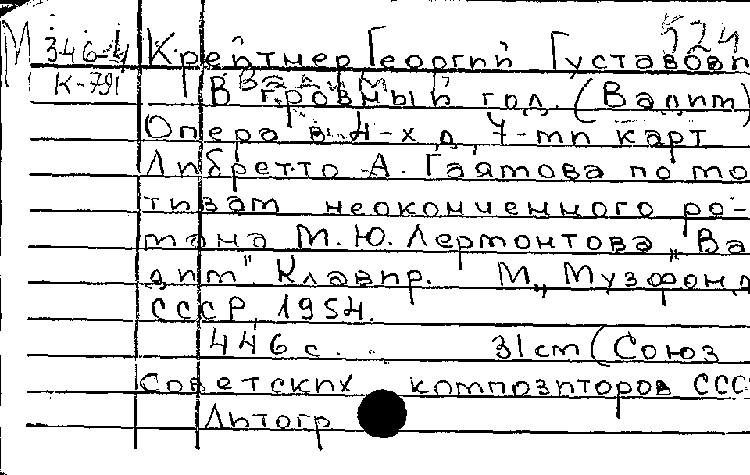 М 346-4 Крейтнер Георгий Густавови 524
К-791 В грозный год. (Вадим)
Опера в 4-х д, 7-ми карт
Либретто А. Гаямова по мо
тивам неоконченного ро-
мана М.Ю. Лермонтова „Ва
дим". Клавир. М., Музфонд
СССР, 1954.
446 с. 31 cm (Союз
советских композиторов ССС
Литогр